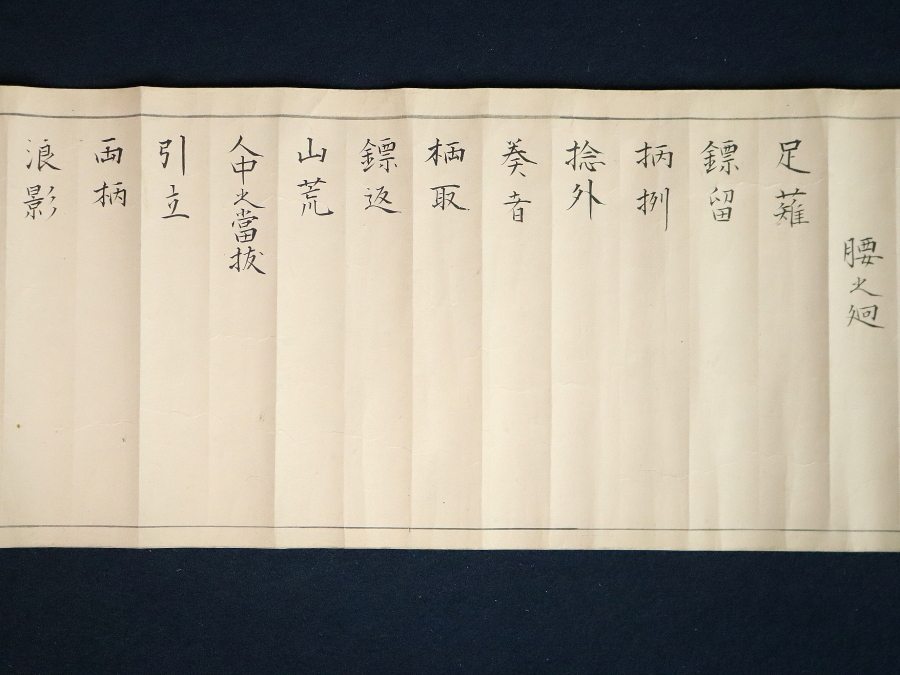 腰之廻
足薙
鏢留
柄捌
捻外
奏者
柄取
鏢返
山荒
人中之當抜
引立
両柄
浪影